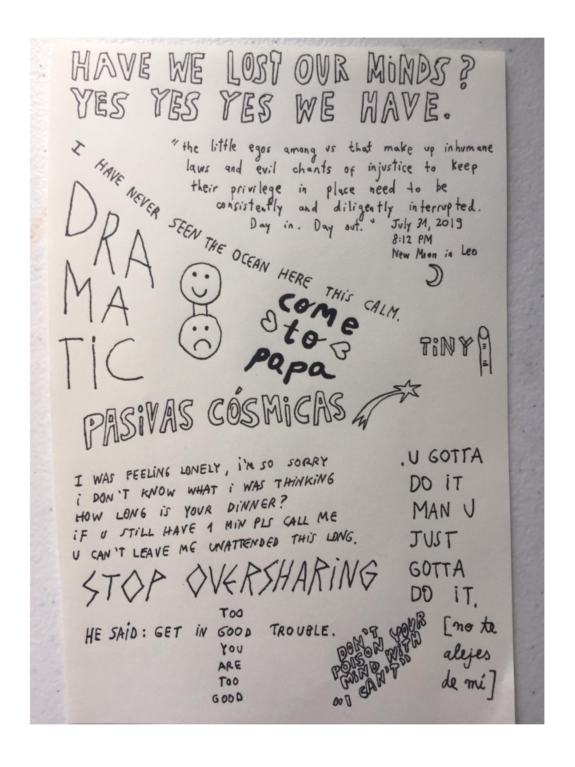 HAVE WE LOST OUR MiNDS?
YES YES YES WE HAVE.
"the little egos among us that make up inhumane
laws and evil chants of injustice to keep
their privilege in place need to be
consistently and diligently interrupted.
Day in. Day out."
July 31, 2019
8:12 PM
New Moon in Leo
I HAVE NEVER SEEN THE OCEAN HERE THiS CALM.
DRA
MA
TIC
come
to
papa
TiNY
PASiVAS CÓSMiCAS
I WAS FEELiNG LONELY, i'M SO SORRY
i DON'T KNOW WHAT i WAS THiNKiNG
HOW LONG iS YOUR DiNNER?
iF U STiLL HAVE 1 MiN PLS CALL ME
U CAN'T LEAVE ME UNATTENDED THiS LONG.
.U GOTTA
DO iT
MAN U
JUST
GOTTA
DO iT.
STOP OVERSHARiNG
TOO
HE SAiD: GET iN GOOD TROUBLE.
YOU
ARE
TOO
GOOD
DON'T
POiSON YOUR
MiND WiTH
"i CAN'T"
[no te
alejes
de mí]